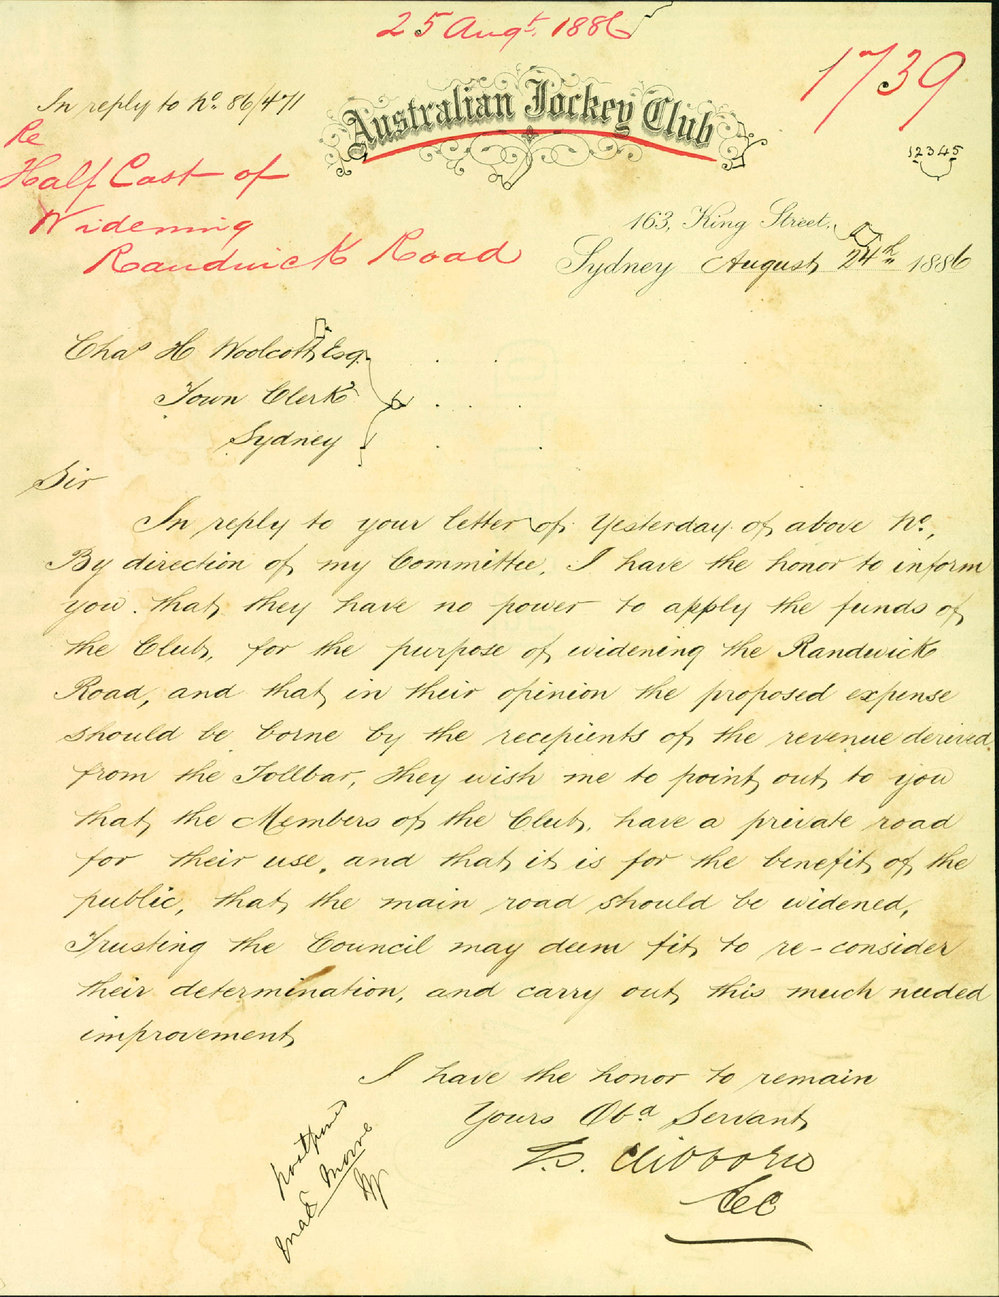 25 Augt. 1886
1739
In reply to No. 86/471
Australian Jockey Club
12345
Re
Half Cost of
Widening
Randwick Road
163, King Street,
Sydney August 24th 1886
Chas H Woolcott Esq.
Town Clerk
Sydney
Sir
In reply to your letter of yesterday of above No.,
By direction of my Committee, I have the honor to inform
you that they have no power to apply the funds of
the Club, for the purpose of widening the Randwick
Road, and that in their opinion the proposed expense
should be borne by the recipients of the revenue derived
from the Tollbar, they wish me to point out to you
that the Members of the Club, have a private road
for their use, and that it is for the benefit of the
public, that the main road should be widened,
Trusting the Council may deem fit to re-consider
their determination, and carry out this much needed
improvement
I have the honor to remain
Yours Obd Servant
T.S. Clibborn
Sec
postpined
Moore